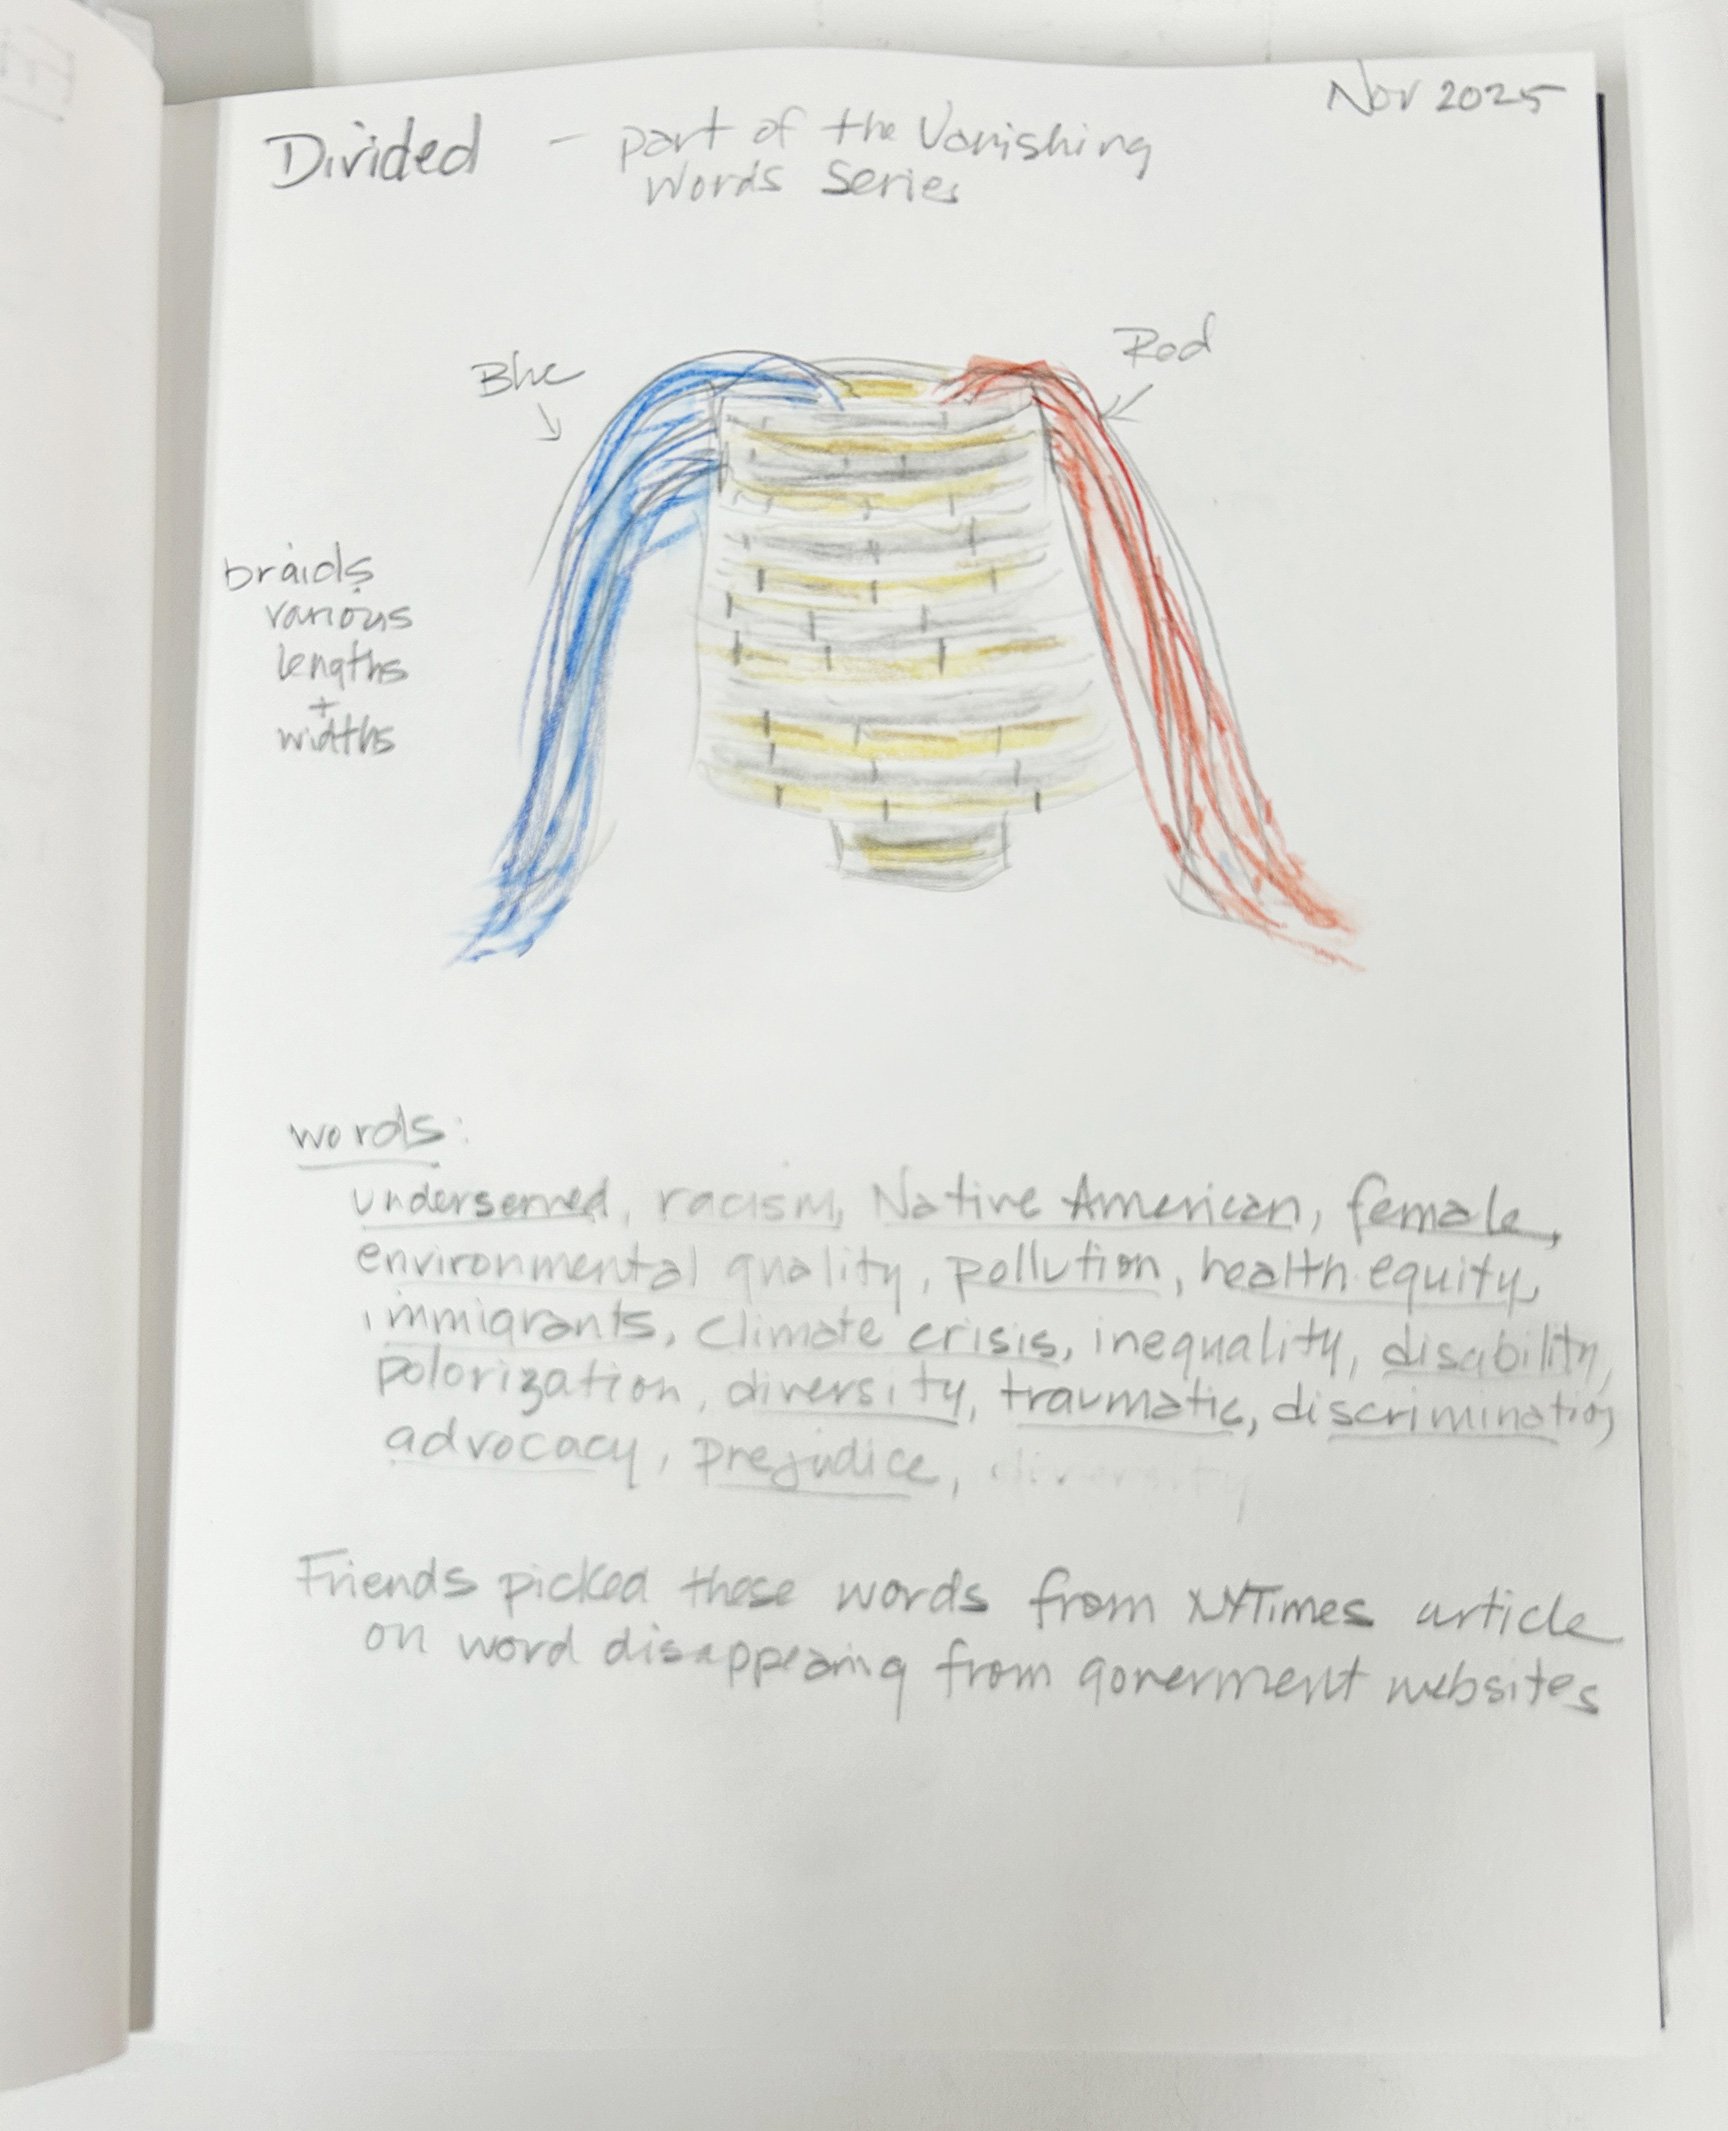 Nov 2025
Divided – part of the Vanishing
Words Series
Blue
Red
braids
various
lengths
+
widths
words:
underserved, racism, Native American, female,
environmental quality, pollution, health equity,
immigrants, climate crisis, inequality, disability,
polorization, diversity, traumatic, discrimination,
advocacy, prejudice, diversity
Friends picked these words from NYTimes article
on word disappearing from goverment websites